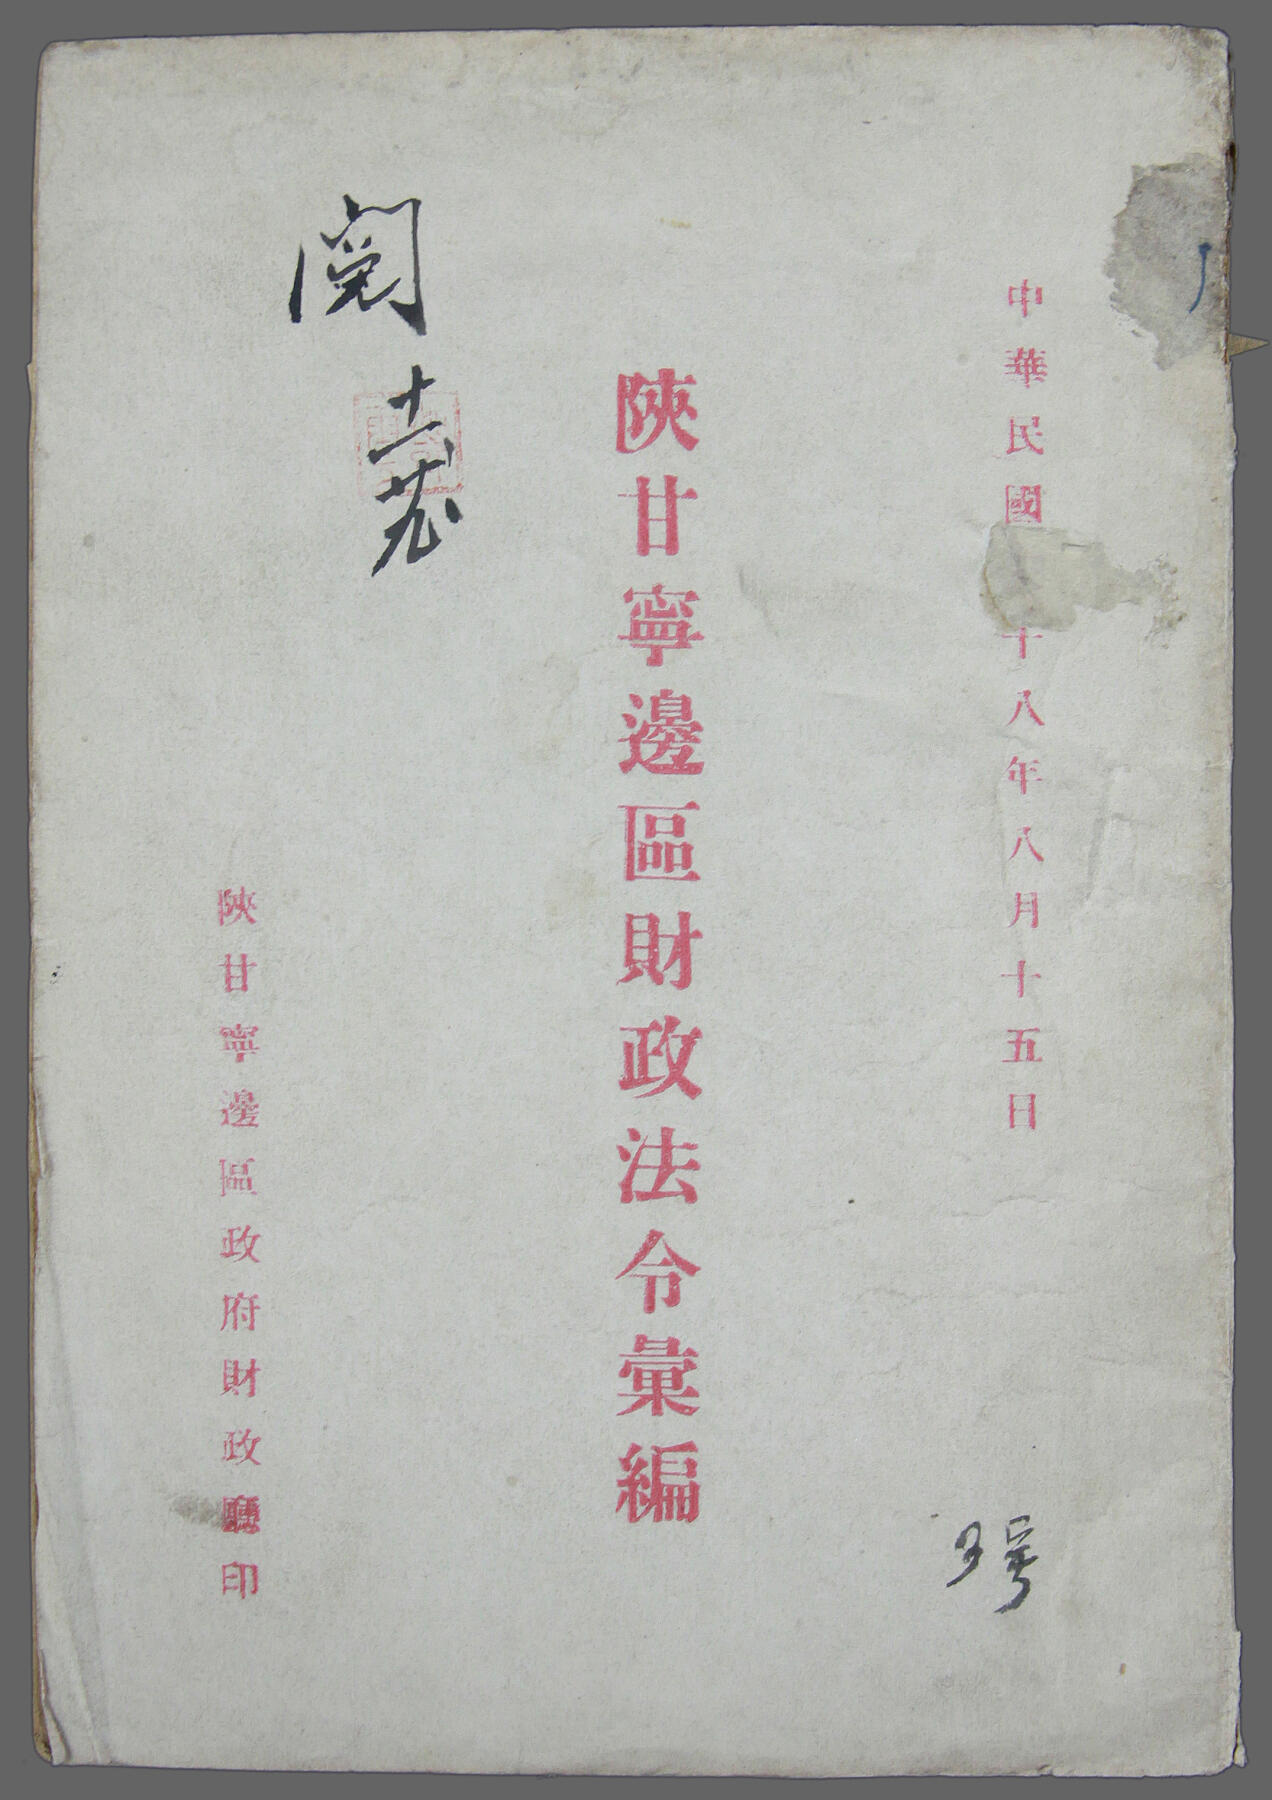 中華民國十八年八月十五日
陝甘寧邊區財政法令彙編
閱
十一
廿九
陝甘寧邊區政府財政廳印